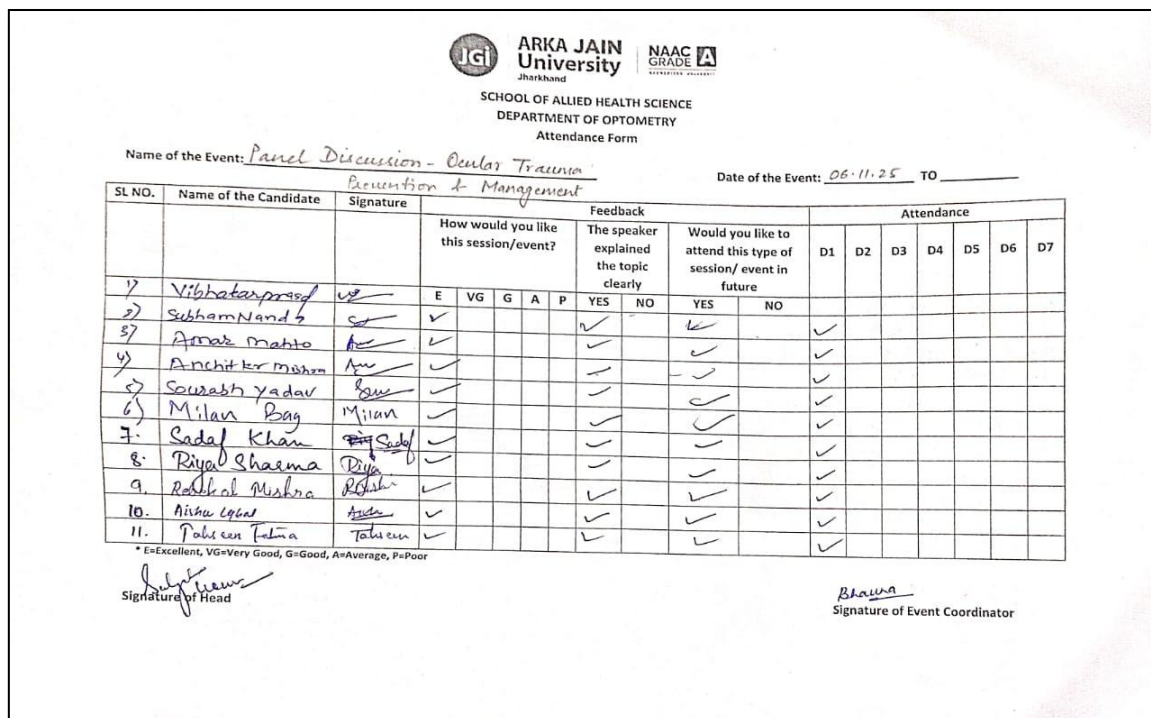 JGi
ARKA JAIN
University
Jharkhand
NAAC
GRADE A
ACCREDITED UNIVERSITY
SCHOOL OF ALLIED HEALTH SCIENCE
DEPARTMENT OF OPTOMETRY
Attendance Form
Name of the Event: Panel Discussion - Ocular Trauma
Prevention & Management
Date of the Event: 06.11.25 TO
SL NO. Name of the Candidate Signature Feedback Attendance
How would you like this session/event? The speaker explained the topic clearly Would you like to attend this type of session/ event in future D1 D2 D3 D4 D5 D6 D7
E VG G A P YES NO YES NO
1) Vibhatarprasd
2) Subham Nandy
3) Amar Mahto
4) Anchit kr Mishra
5) Sourabh Yadav
6) Milan Bag Milan
7. Sadaf Khan Sadaf
8. Riya Sharma Riya
9. Mishra
10. Aisha Iqbal
11. Tahseen Fatma Tahseen
* E=Excellent, VG=Very Good, G=Good, A=Average, P=Poor
Signature of Head
Bhawna
Signature of Event Coordinator